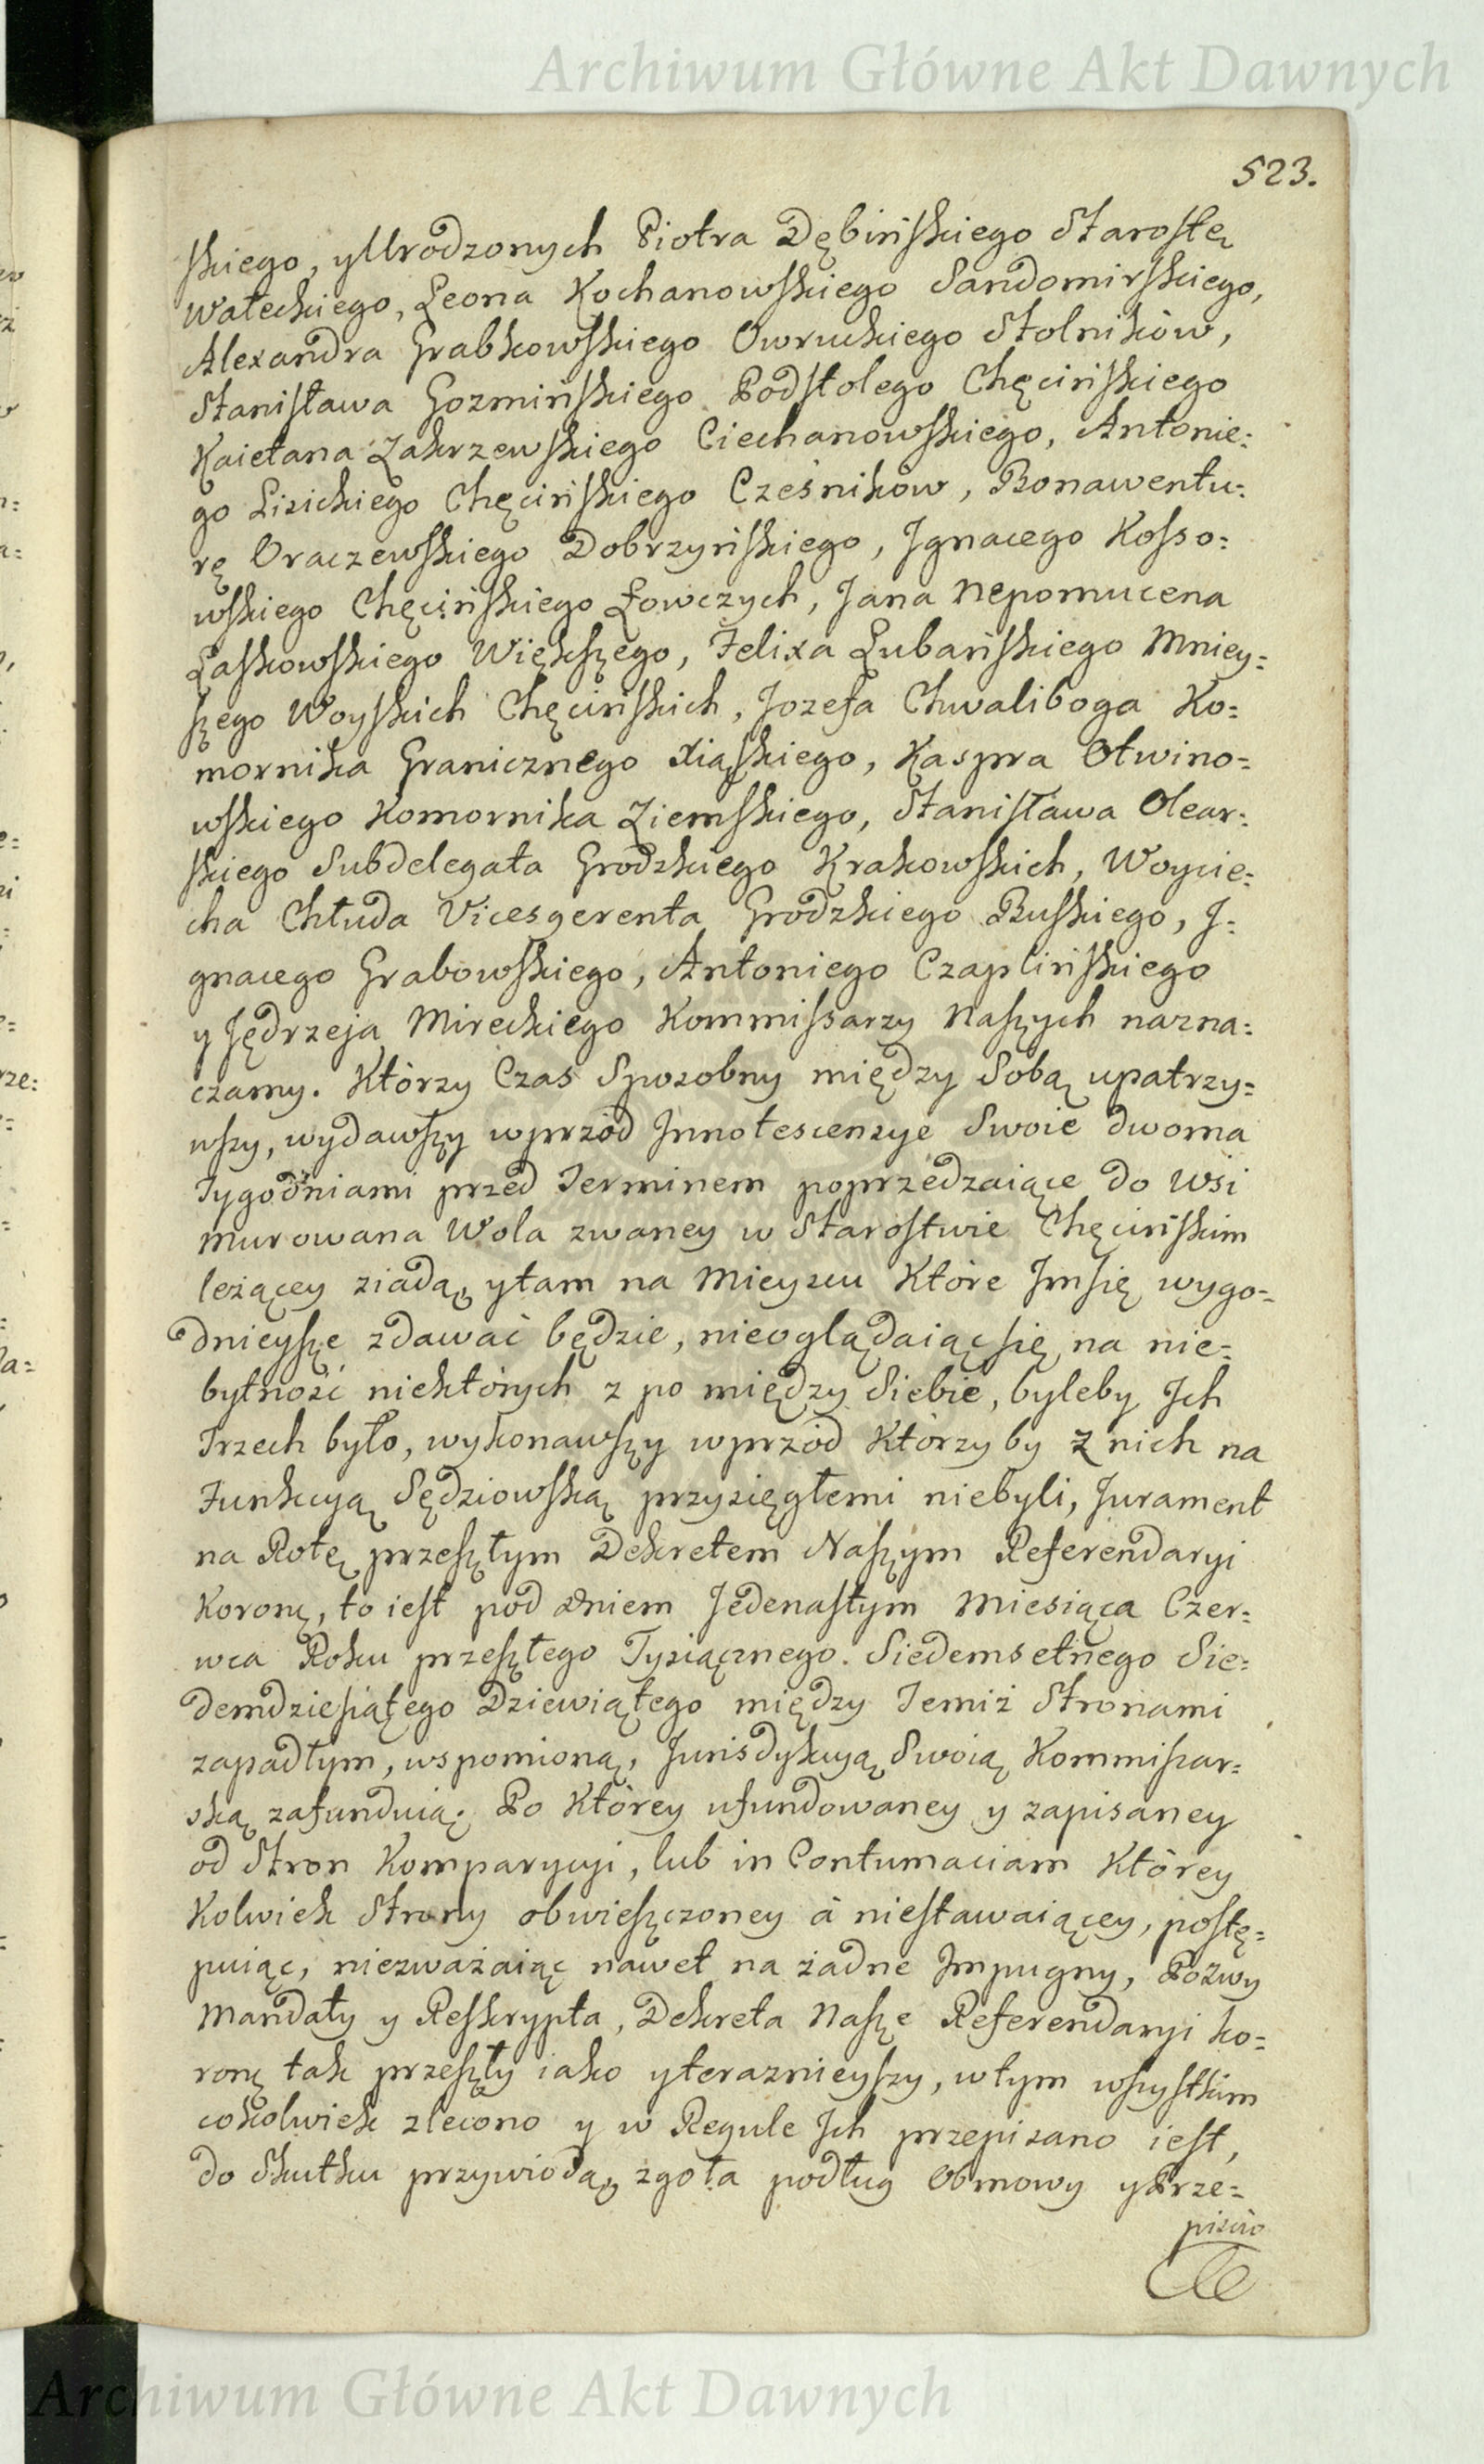 Archiwum Główne Akt Dawnych
523.
skiego, y Urodzonych Piotra Dębińskiego Starostę
Wałeckiego, Leona Kochanowskiego Sandomirskiego,
Alexandra Grabkowskiego Owruckiego Stolników,
Stanisława Gozmińskiego Podstolego Chęcińskiego
Kaietana Zakrzewskiego Ciechanowskiego, Antonie:
go Lisickiego Chęcińskiego Cześników, Bonawentu:
rę Oraczewskiego Dobrzyńskiego, Jgnacego Kosso:
wskiego Chęcińskiego Łowczych, Jana Nepomucena
Laskowskiego Większego, Felixa Lubańskiego Mniey:
szego Woyskich Chęcińskich, Jozefa Chwaliboga Ko:
mornika Granicznego Xiąskiego, Kaspra Otwino=
wskiego Komornika Ziemskiego, Stanisława Olear:
skiego Subdelegata Grodzkiego Krakowskich, Woycie:
cha Chłuda Vicesgerenta Grodzkiego Buskiego, J:
gnacego Grabowskiego, Antoniego Czaplińskiego
y Jędrzeja Mireckiego Kommissarzy Naszych nazna:
czamy. Którzy Czas Sposobny między Sobą upatrzy=
wszy, wydawszy wprzód Jnnotescencye Swoie dwoma
Tygodniami przed Terminem poprzedzaiące do Wsi
Murowana Wola zwaney w Starostwie Chęcińskim
leżącey ziadą, y tam na Mieyscu Które Jm się wygo=
dnieysze zdawać będzie, nieoglądaiąc się na nie=
bytność niektórych z po między Siebie, byleby Jch
Trzech było, wykonawszy wprzód Którzyby z nich na
Funkcyą Sędziowską przysięgłemi niebyli, Jurament
na Rotę przeszłym Dekretem Naszym Referendaryi
Koronę, to iest pod dniem Jedenastym Miesiąca Czer=
wca Roku przeszłego Tysiącznego Siedemsetnego Sie:
demdziesiątego Dziewiątego między Temiż Stronami
zapadłym, wspomioną, Jurisdykcyą Swoią Kommissar=
ską zafunduią. Po Którey ufundowaney y zapisaney
od Stron Komparycyi, lub in Contumaciam Którey
Kolwiek Strony obwieszczoney á niestawaiącey, postę=
puiąc, niezważaiąc nawet na żadne Jmpugny, Pozwy
Mandaty y Reskrypta, Dekreta Nasze Referendaryi ko=
ronę tak przeszły iako y teraznieyszy, w tym wszystkim
cokolwiek zlecono y w Regule Jch przepisano iest,
do Skutku przywiodą, zgoła podług Obmowy y Prze=
pisów
Archiwum Główne Akt Dawnych